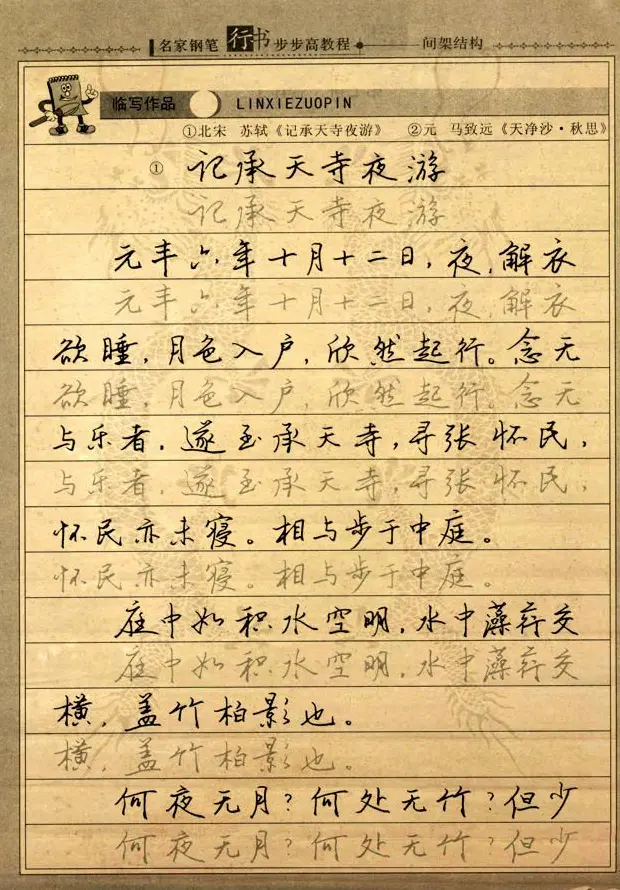 名家钢笔行书步步高教程 间架结构
临写作品 LINXIEZUOPIN
①北宋 苏轼《记承天寺夜游》 ②元 马致远《天净沙·秋思》
① 记承天寺夜游
记承天寺夜游
元丰六年十月十二日,夜,解衣
元丰六年十月十二日,夜,解衣
欲睡,月色入户,欣然起行。念无
欲睡,月色入户,欣然起行。念无
与乐者,遂至承天寺,寻张怀民,
与乐者,遂至承天寺,寻张怀民,
怀民亦未寝。相与步于中庭。
怀民亦未寝。相与步于中庭。
庭中如积水空明,水中藻荇交
庭中如积水空明,水中藻荇交
横,盖竹柏影也。
横,盖竹柏影也。
何夜无月?何处无竹?但少
何夜无月?何处无竹?但少